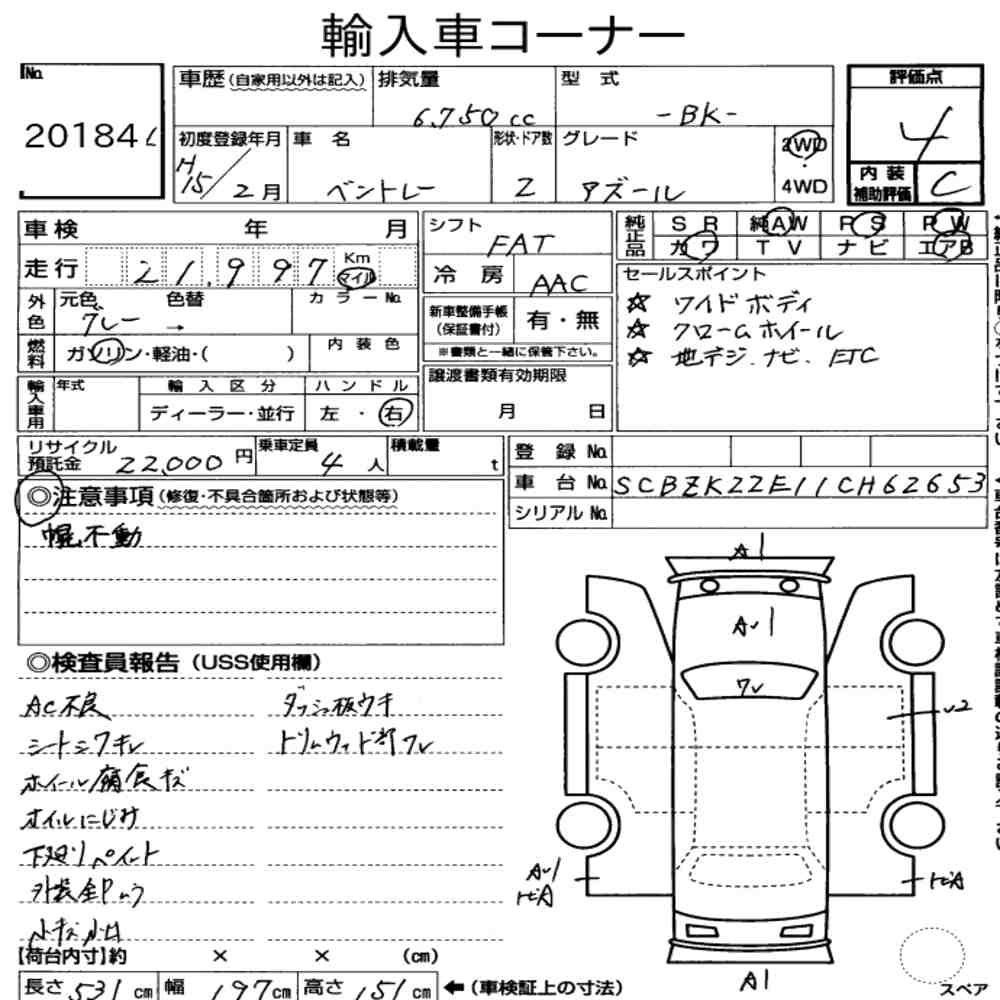 輸入車コーナー
No. 20184
車歴(自家用以外は記入) 排気量 6,750cc 型式 -BK-
評価点 4
初度登録年月 H15/2月 車名 ベントレー 形状・ドア数 2 グレード アズール 2WD・4WD
内装補助評価 C
車検 年 月
シフト FAT
純正品 SR 純AW PS PW
カワ TV ナビ エアB
走行 21,997 Km マイル
冷房 AAC
セールスポイント
☆ ワイドボディ
☆ クロームホイール
☆ 地デジ.ナビ.ETC
外色 元色 グレー → 色替 カラーNo.
新車整備手帳(保証書付) 有・無
※書類と一緒に保管下さい。
燃料 ガソリン・軽油・( ) 内装色
譲渡書類有効期限
月 日
輸入車用 年式 輸入区分 ハンドル
ディーラー・並行 左・右
リサイクル預託金 22,000円 乗車定員 4人 積載量 t
登録No.
車台No. SCBZK22E11CH62653
シリアルNo.
◎注意事項(修復・不具合箇所および状態等)
幌不動
◎検査員報告(USS使用欄)
AC不良 ダッシュ板ウキ
シートシワキレ トリムウッド部ワレ
ホイール腐食キズ
オイルにじみ
下廻りペイント
外装全Pムラ
小キズ小凹
A1
Av1
ワv
v2
Av1
ピA
ピA
A1
スペア
【荷台内寸】約 × × (cm)
長さ531cm 幅197cm 高さ151cm ←(車検証上の寸法)